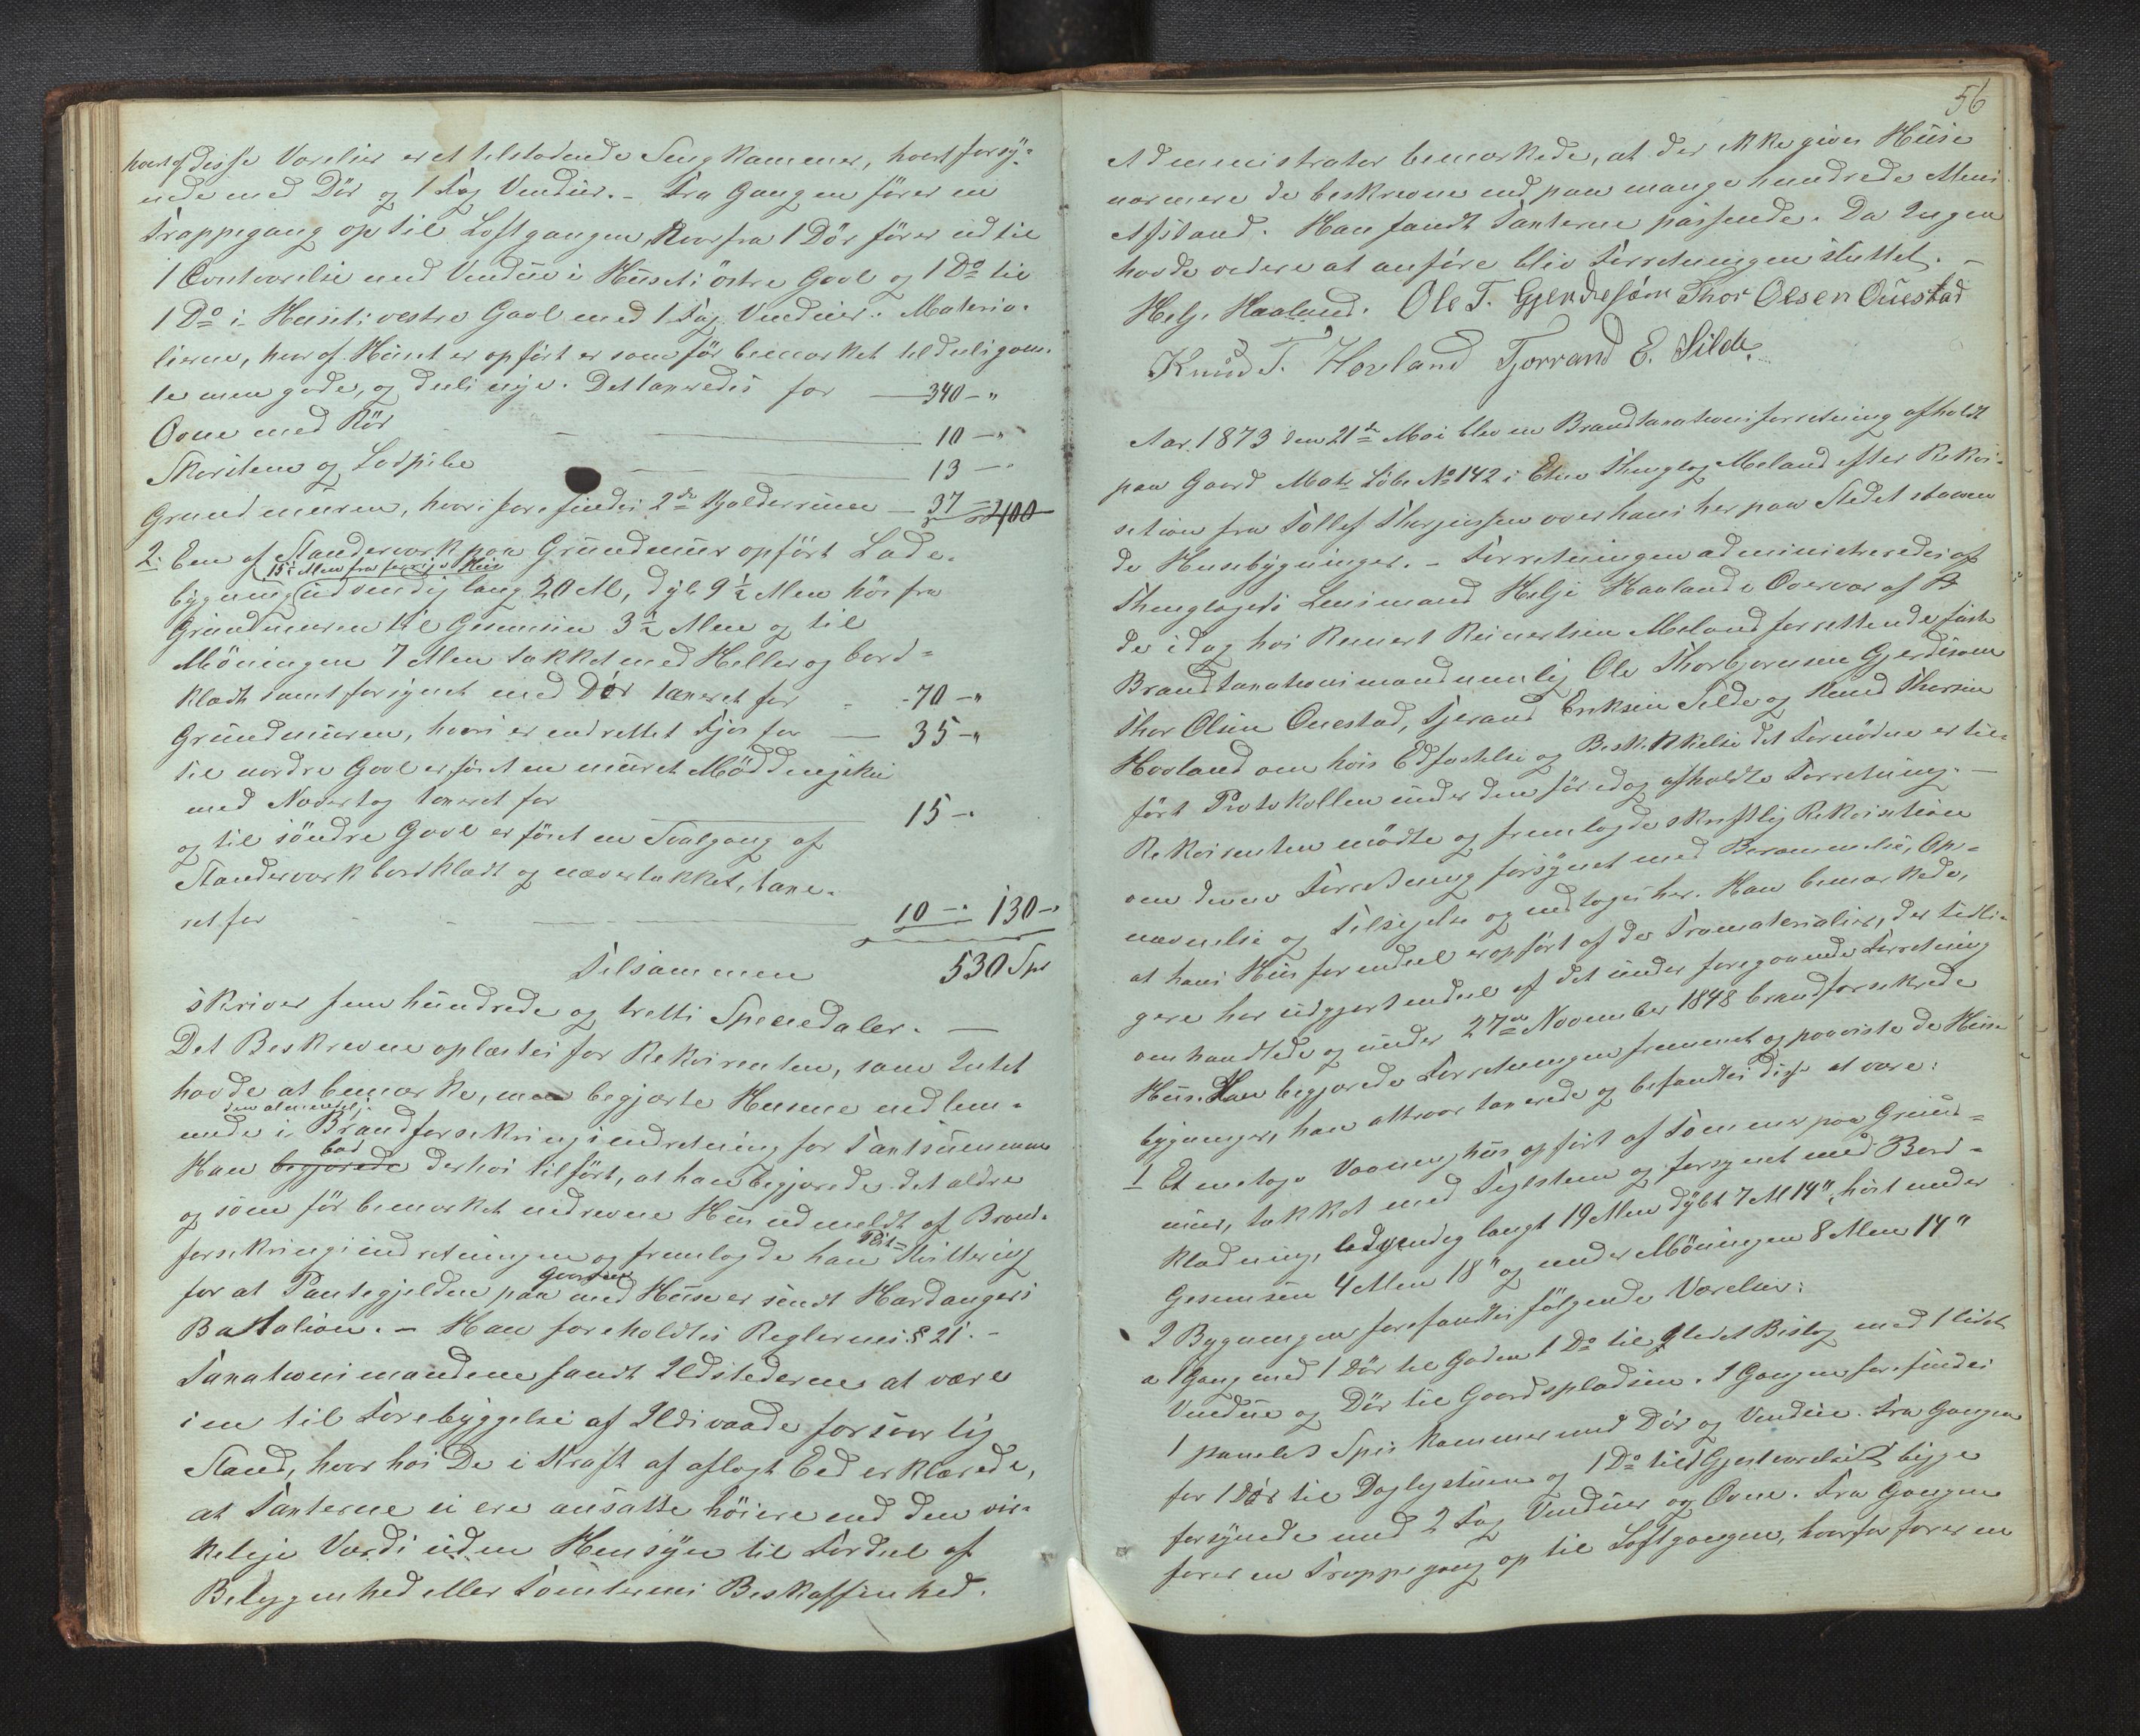 hvert af disse Værelser er et tilstødende Sengkammer, hvert forsy-
nede med Dør og 1 Fag Vinduer. - Fra Gangen fører en
Trappegang op til Loftgangen, hvorfra 1 Dør fører ud til
1 Ovntværelse med Vindue i Husets østre Gavl og 1 Do til
1 Do i Husets vestre Gavl med 1 Fag Vinduer. Materia-
lierne, hvoraf Huset er opført er som før bemærket tildeels gam-
le men gode, og deels nye. Det taxeredes for — 340 - "
Ovne med Rør — 10 - "
Skorsten og Lodpibe — 13 - "
Grundmuren, hvori forefindes 2de Kjælderrum — 37 = 400
2. Een af Standerværk paa Grundmur opført Lade-
15½ Alen fra forrige Huus
bygning udvendig lang 20 Al, dyb 9½ Alen høi fra
Grundmuren til Gesimsen 3½ Alen og til
Møningen 7 Alen takket med Heller og bord-
klædt samt forsynet med Dør taxeret for - 70 - "
Grundmuren, hvori er indrettet Fjøs for — 35 - "
til nordre Gavl er føiet en muret Møddingskur
med Nævertag taxeret for — 15 - "
og til søndre Gavl er føiet en Svalgang af
Standerværk bordklædt og nævertækket, taxe-
ret for — 10 - " 130 - "
Tilsammen 530 Spd
skriver fem hundrede og tretti Speciedaler. —
Det Beskrevne oplæstes for Rekvirenten, som Intet
havde at bemærke, men begjærte Husene indlem-
den almindelige
mede i Brandforsikringsindretning for Taxtsummen
bad
Han begjærede derhos tilført, at han begjærede det ældre
og som før bemærket nedrevne Huus udmeldt af Brand-
forsikringsindretningen og fremlagde han Kvittering
Gaarden
for at Pantegjælden paa med Huse er sendt Hardangers
Battalion. - Han foreholdtes Reglernes § 21. -
Taxationsmændene fandt Ildstederne at være
i en til Forebyggelse af Ildsvaade forsvarlig
Stand, hvorhos De i Kraft af aflagt Eed erklærede,
at Taxterne ei ere ansatte høiere end den vir-
kelige Værdi uden Hensyn til Fordeel af
Beliggenhed eller Tomternes Beskaffenhed.
56
Administrator bemærkede, at der ikke gives Huse
nærmere de beskrevne end paa mange hundrede Alens
Afstand. Han fandt Taxterne passende. Da Ingen
havde videre at anføre blev Forretningen sluttet. -
Helje Haaland. Ole T. Gjerdesøm Thor Olsen Ouestad
Knud T. Hovland Tjorrand E. Silde.
Aar 1873 den 21de Mai blev en Brandtaxationsforretning afholdt
paa Gaard Matr Løbe No 142 i Etne Thinglag Meland efter Rekvi-
sition fra Tollef Thorjussen over hans her paa Stedet staaen
de Husebygninger. - Forretningen administreredes af
Thinglagets Lensmand Helje Haaland i Overvær af
de idag hos Reinert Reinertsen Meland forrettende faste
Brandtaxationsmænd nemlig Ole Thorbjørnsen Gjerdesøm
Thor Olsen Ouestad, Tjerand Eriksen Silde og Knud Thorsen
Hovland om hvis Edfæstelse og Beskikkelse det Fornødne er til-
ført Protokollen under den før idag afholdte Forretning. —
Rekvirenten mødte og fremlagde skriftlig Rekvisition
om denne Forretning forsynet med Berammelse, Op-
nævnelse og Tilsigelse og indtages her. Han bemærkede,
at hans Huus for endeel er opført af de Træmaterialier, der tidli-
gere har udgjort endeel af det under foregaaende Forretning
omhandlede og under 27de November 1848 brandforsikrede
Huus. Han begjærede Forretningen fremmet og paaviste de Huse-
bygninger, han attraar taxerede og befandtes disse at være:
1 Et enetages Vaaningshuus opført af Tømmer paa Grund-
muur, takket med Teglsteen og forsynet med Bord-
klædning, udvendig langt 19 Alen dybt 7 Al 14", høit under
Gesimsen 4 Alen 18" og under Møningen 8 Alen 14"
I Bygningen forefandtes følgende Værelser:
a 1 Gang med 1 Dør til Gaden 1 Do til et lidet Bislag med 1 lidet
Vindue og Dør til Gaardspladsen. I Gangen forefindes
1 panelet Spiskammer med Dør og Vindue. Fra Gangen
før 1 Dør til Daglystuen og 1 Do til 1 Gjesteværelse begge
forsynede med 2 Fag Vinduer og Ovne. Fra Gangen
fører en Trappegang op til Loftgangen, hvorfra fører en